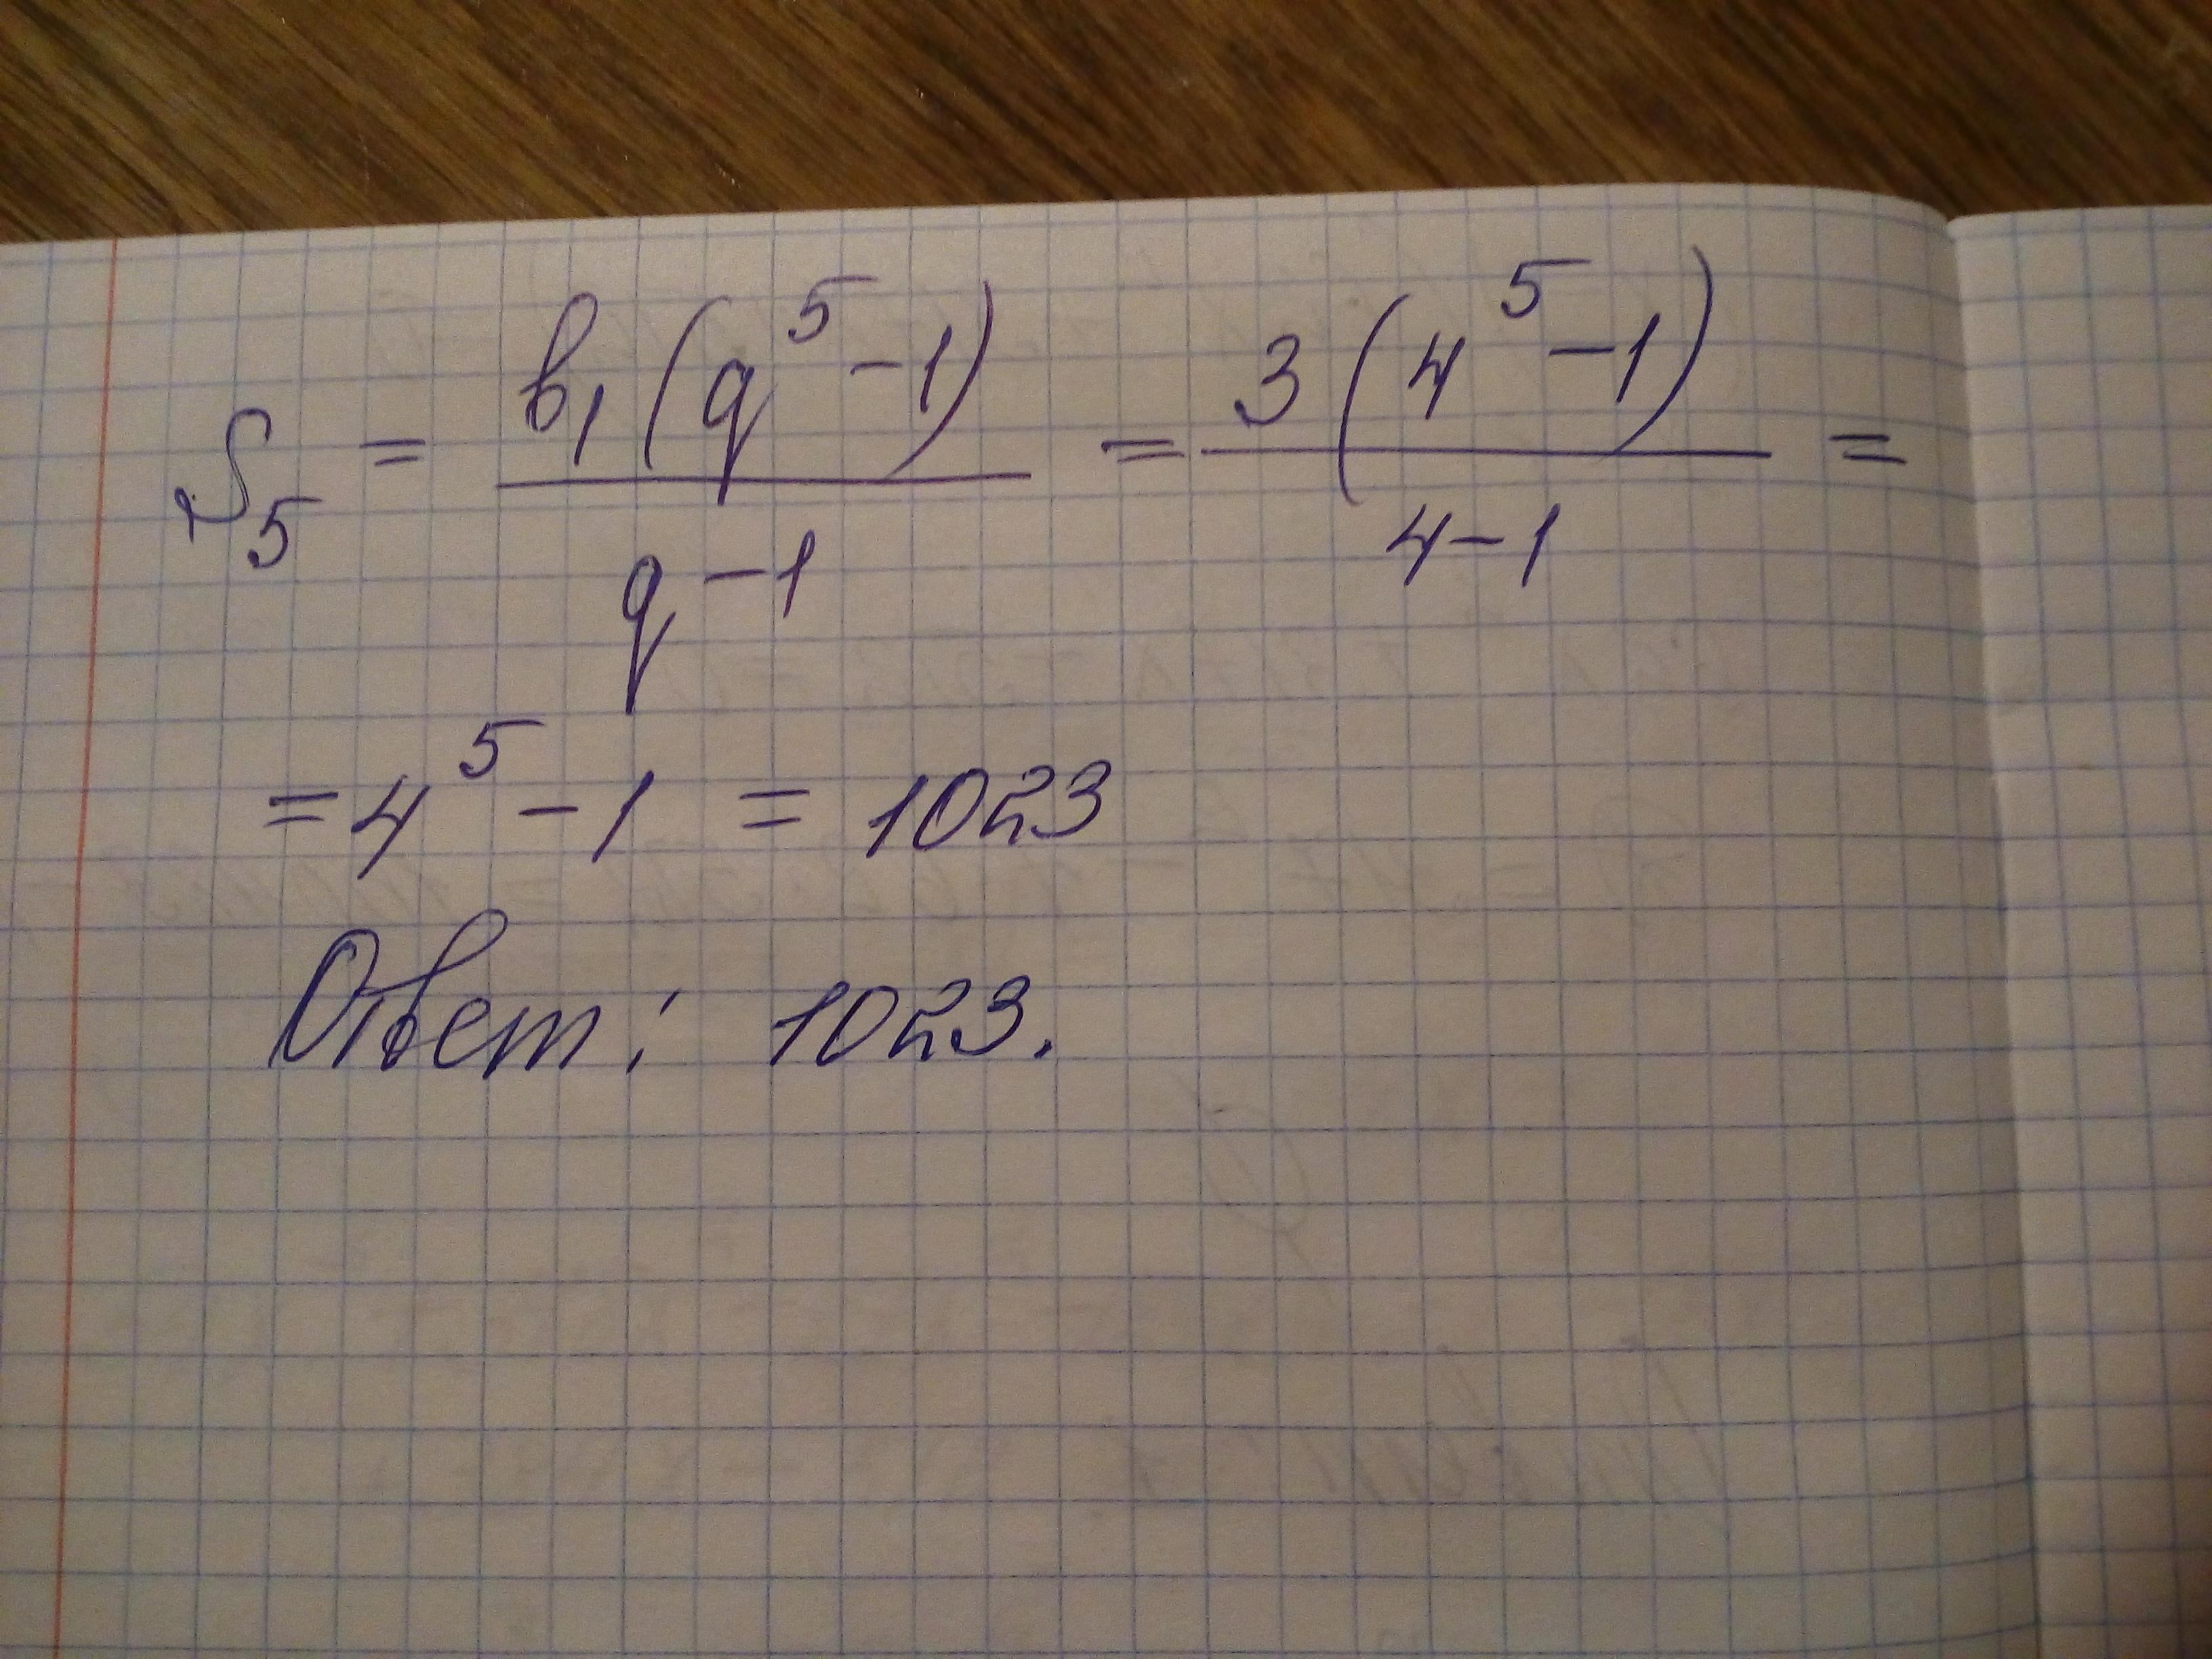 S₅ = b₁(q⁵-1)/(q-1) = 3(4⁵-1)/(4-1) =
= 4⁵ - 1 = 1023
Ответ: 1023.